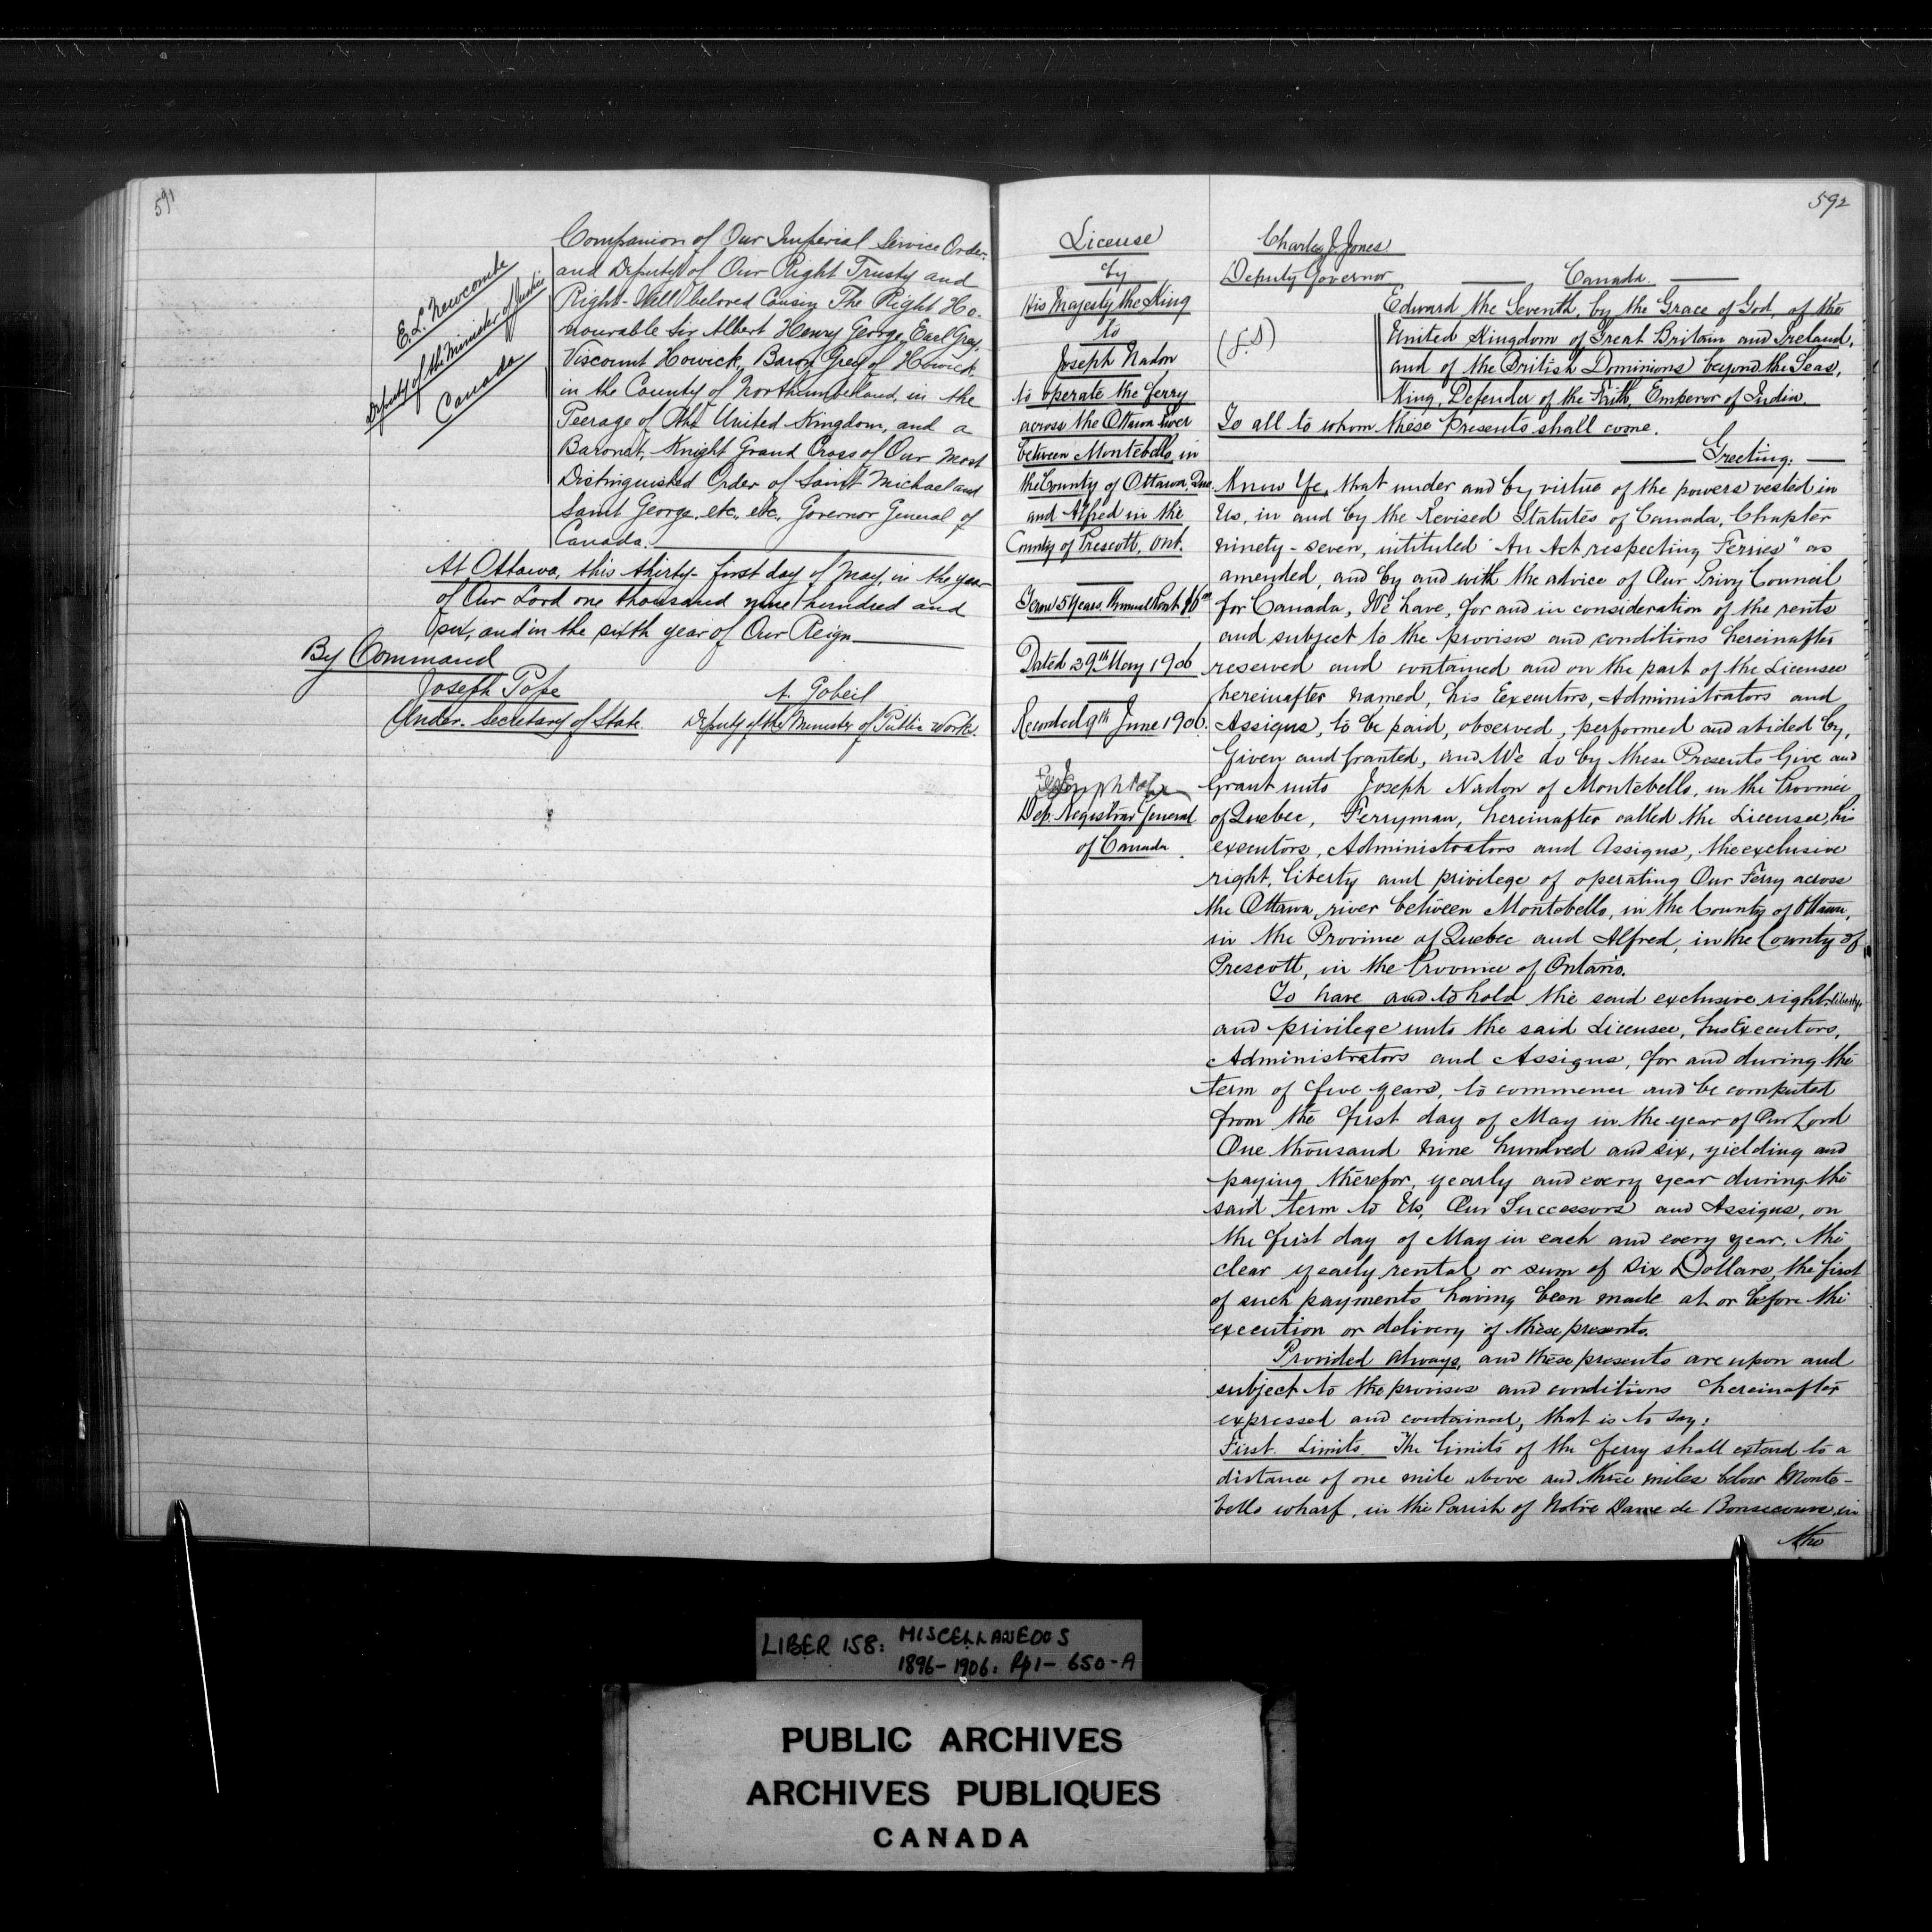 591
E. L. Newcombe
Deputy of the Minister of Justice
Canada
Companion of Our Imperial Service Order,
and Deputy of Our Right Trusty and
Right-Well beloved Cousin The Right Ho-
nourable Sir Albert Henry George, Earl Grey,
Viscount Howick, Baron Grey of Howick
in the County of Northumberland, in the
Peerage of the United Kingdom, and a
Baronet, Knight Grand Cross of Our Most
Distinguished Order of Saint Michael and
Saint George, etc., etc., Governor General of
Canada.
At Ottawa, this thirty-first day of May, in the year
of Our Lord one thousand nine hundred and
six, and in the sixth year of Our Reign
By Command
Joseph Pope
Under-Secretary of State.
A. Gobeil
Deputy of the Minister of Public Works.
592
License
by
His Majesty the King
to
Joseph Nadon
to operate the ferry
across the Ottawa river
between Montebello, in
the County of Ottawa, Que.
and Alfred in the
County of Prescott, Ont.
Term 5 Years. Annual Rent $6.00
Dated 29th May 1906
Recorded 9th June 1906.
Joseph Pope
Dep. Registrar General
of Canada.
Charles J. Jones
Deputy Governor
Canada.
(L.S)
Edward the Seventh, by the Grace of God, of the
United Kingdom of Great Britain and Ireland,
and of the British Dominions beyond the Seas,
King, Defender of the Faith, Emperor of India.
To all to whom these Presents shall come.
Greeting:
Know Ye, that under and by virtue of the powers vested in
Us, in and by the Revised Statutes of Canada, Chapter
ninety-seven, intituled "An Act respecting Ferries" as
amended, and by and with the advice of Our Privy Council
for Canada, We have, for and in consideration of the rents
and subject to the provisos and conditions hereinafter
reserved and contained and on the part of the Licensee
hereinafter named, his Executors, Administrators and
Assigns, to be paid, observed, performed and abided by,
Given and Granted, and We do by these Presents Give and
Grant unto Joseph Nadon of Montebello, in the Province
of Quebec, Ferryman, hereinafter called the Licensee, his
executors, Administrators and Assigns, the exclusive
right, liberty and privilege of operating Our Ferry across
the Ottawa river between Montebello, in the County of Ottawa,
in the Province of Quebec and Alfred, in the County of
Prescott, in the Province of Ontario.
To have and to hold the said exclusive right, liberty,
and privilege unto the said Licensee, his Executors,
Administrators and Assigns, for and during the
term of five years, to commence and be computed
from the first day of May in the year of Our Lord
One thousand nine hundred and six, yielding and
paying therefor, yearly and every year during the
said term to Us, Our Successors and Assigns, on
the first day of May in each and every year, the
clear yearly rental or sum of Six Dollars, the first
of such payments having been made at or before the
execution or delivery of these presents.
Provided always, and these presents are upon and
subject to the provisos and conditions hereinafter
expressed and contained, that is to say:
First. Limits The limits of the ferry shall extend to a
distance of one mile above and three miles below Monte-
bello wharf, in the Parish of Notre Dame de Bonsecours, in
the
LIBER 158: MISCELLANEOUS
1896-1906: Pp1-650-A
PUBLIC ARCHIVES
ARCHIVES PUBLIQUES
CANADA